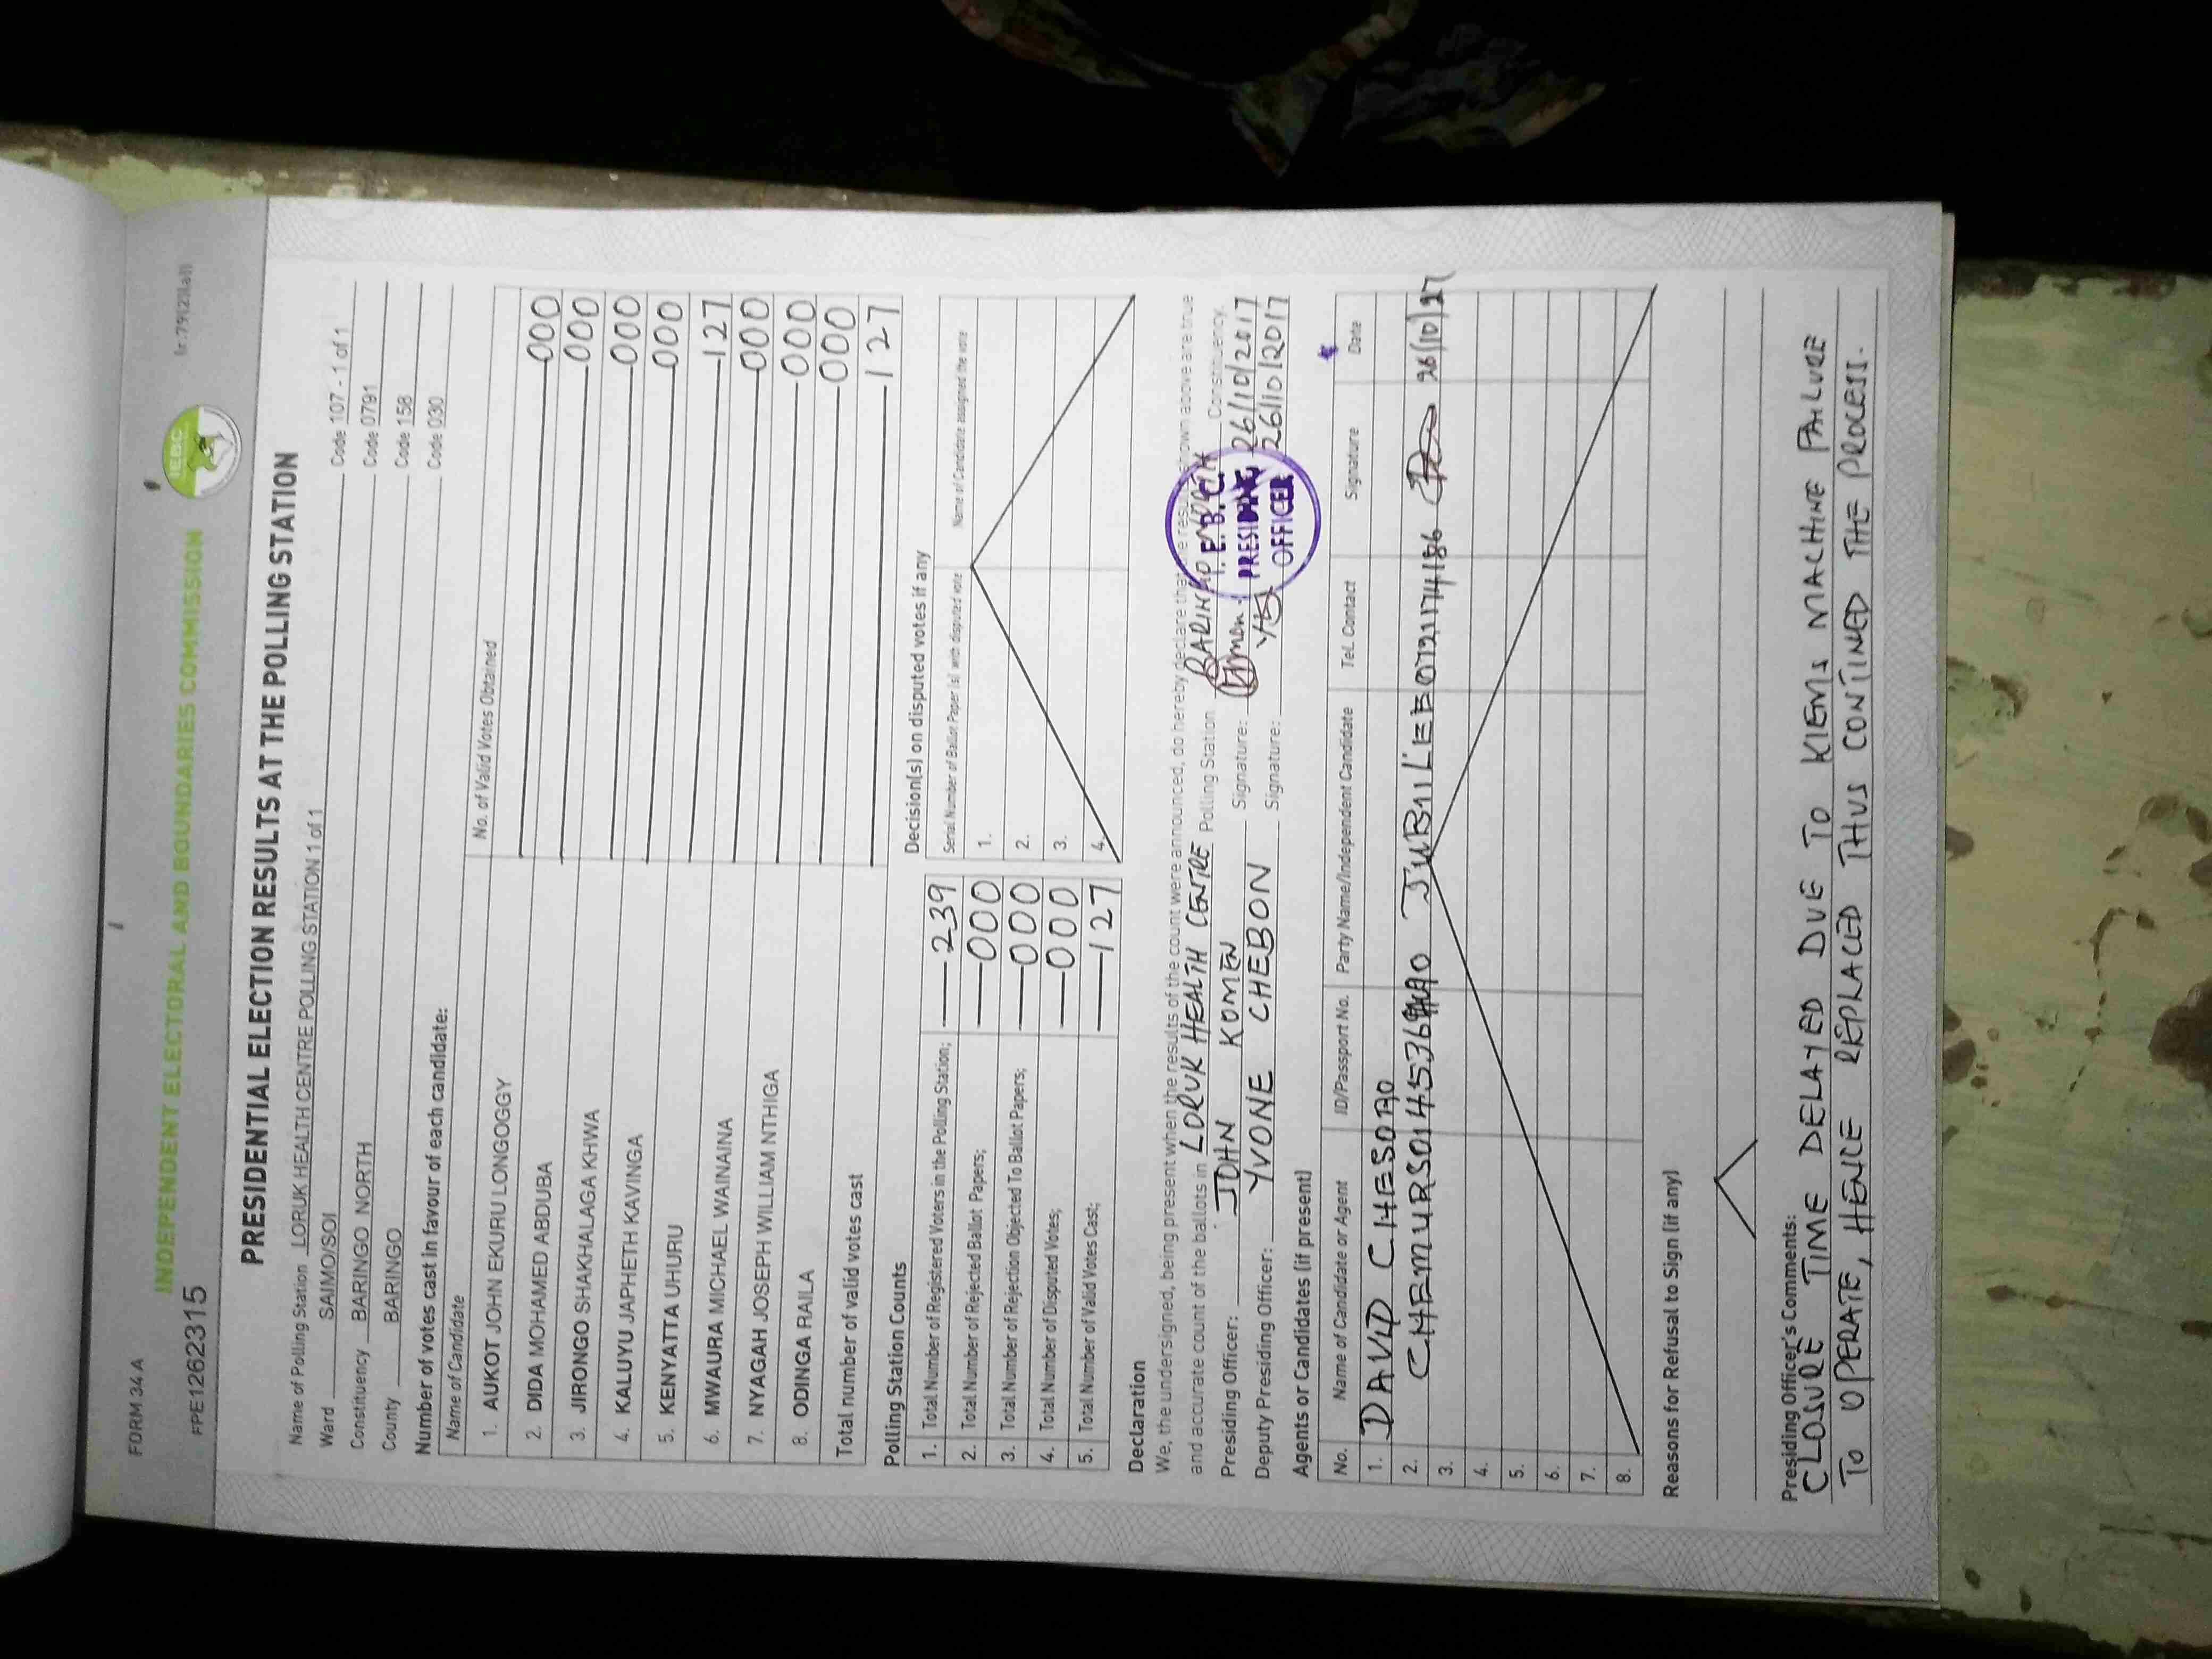 FORM 34A
FPE1262315
(r.79(2)(a))
INDEPENDENT ELECTORAL AND BOUNDARIES COMMISSION
IEBC
PRESIDENTIAL ELECTION RESULTS AT THE POLLING STATION
Name of Polling Station LORUK HEALTH CENTRE POLLING STATION 1 of 1 Code 107 - 1 of 1
Ward SAIMO/SOI Code 0791
Constituency BARINGO NORTH Code 158
County BARINGO Code 030
Number of votes cast in favour of each candidate:
Name of Candidate No. of Valid Votes Obtained
1. AUKOT JOHN EKURU LONGOGGY 000
2. DIDA MOHAMED ABDUBA 000
3. JIRONGO SHAKHALAGA KHWA 000
4. KALUYU JAPHETH KAVINGA 000
5. KENYATTA UHURU 127
6. MWAURA MICHAEL WAINAINA 000
7. NYAGAH JOSEPH WILLIAM NTHIGA 000
8. ODINGA RAILA 000
Total number of valid votes cast 127
Polling Station Counts
1. Total Number of Registered Voters in the Polling Station; 239
2. Total Number of Rejected Ballot Papers; 000
3. Total Number of Rejection Objected To Ballot Papers; 000
4. Total Number of Disputed Votes; 000
5. Total Number of Valid Votes Cast; 127
Decision(s) on disputed votes if any
Serial Number of Ballot Paper(s) with disputed vote Name of Candidate assigned the vote
1.
2.
3.
4.
Declaration
We, the undersigned, being present when the results of the count were announced, do hereby declare that the results shown above are true
and accurate count of the ballots in LORUK HEALTH CENTRE Polling Station BARINGO NORTH Constituency.
Presiding Officer: JOHN KOMEN Signature: 26/10/2017
Deputy Presiding Officer: YVONE CHEBON Signature: 26/10/2017
I.E.B.C.
PRESIDING
OFFICER
Agents or Candidates (if present)
No. Name of Candidate or Agent ID/Passport No. Party Name/Independent Candidate Tel. Contact Signature Date
1. DAVID CHESORO
2. CHEMURSO JUBILEE 0721174186
3.
4.
5.
6.
7.
8.
Reasons for Refusal to Sign (if any)
Presiding Officer's Comments:
CLOSURE TIME DELAYED DUE TO KIEMS MACHINE FAILURE
TO OPERATE, HENCE REPLACED THUS CONTINED THE PROCESS.